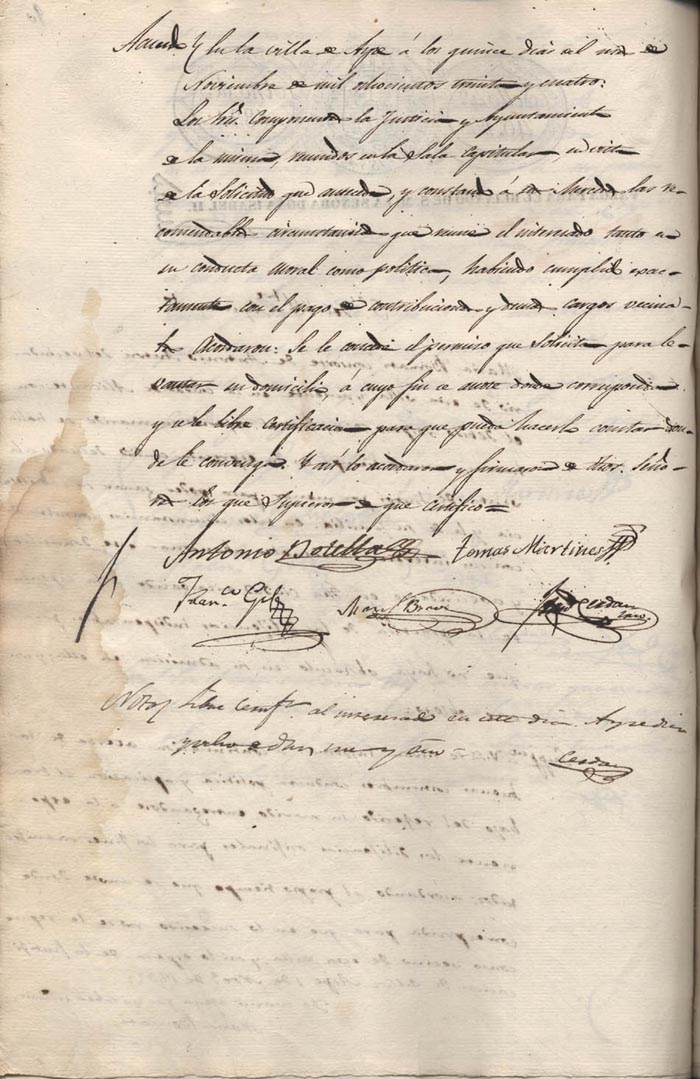 Acuerdo } En la villa de Aspe á los quince dias del mes de
Noviembre de mil ochocientos treinta y cuatro:
Los Sres. Componen la Justicia y Ayuntamiento
de la misma, reunidos en la Sala Capitular, en vista
de la Solicitud que antecede, y constando á sus Mercedes las re-
comendables circunstancias que reune el interesado tanto en
su conducta moral como politica, habiendo cumplido exac-
tamente con el pago de contribuciones y demas cargos vecina-
les Acordaron: Se le concede el permiso que Solicita para le-
vantar su domicilio, á cuyo fin se anote donde corresponda
y se le libre Certificacion para que pueda hacerlo constar don-
de le convenga. Y asi lo acordaron y firmaron de dhos. Seño-
res los que Supieron de que certifico=
Antonio Botella Tomas Martines
Franco. Gil Bravo Cerdan
Nota Libré Certifn. al interesado en este dia. Aspe diez
y ocho de
Cerdan